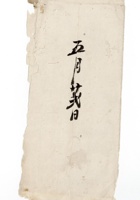 五月廿弐日